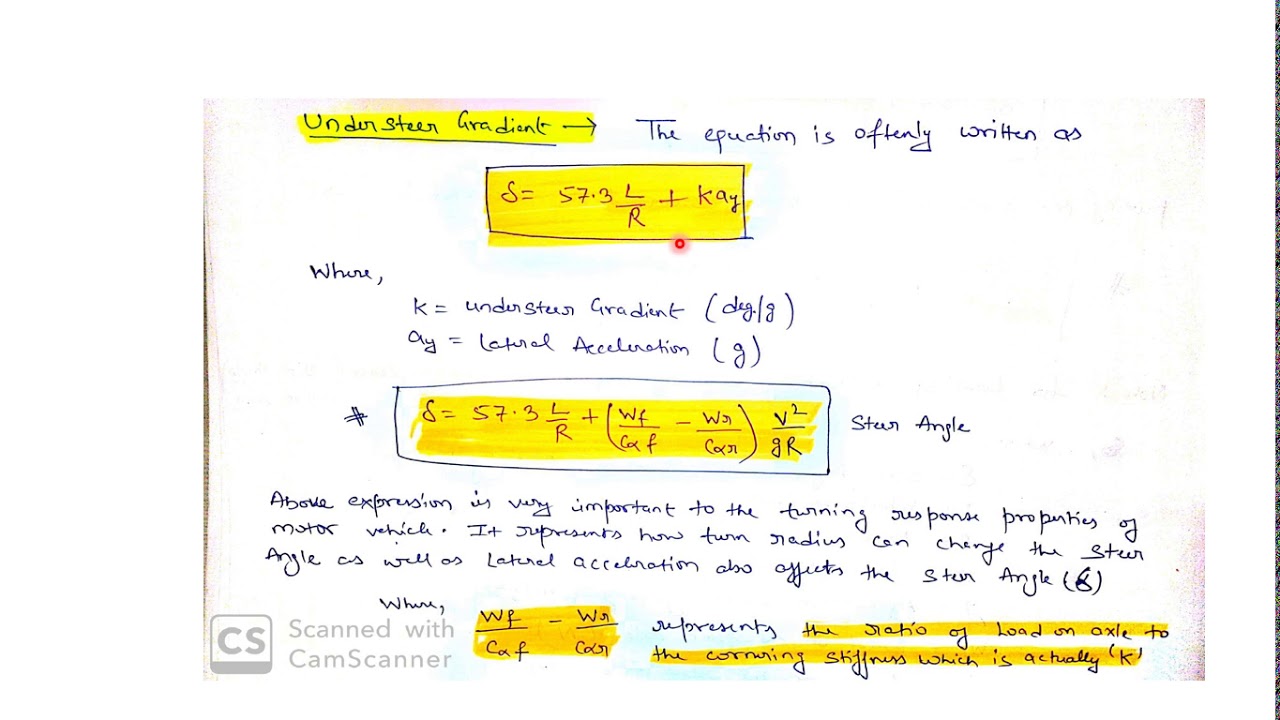 Understeer Gradient → The equation is oftenly written as
δ = 57.3 L/R + Kay
Where,
K = understeer Gradient (deg./g)
ay = Lateral Acceleration (g)
# δ = 57.3 L/R + (Wf/Cαf − Wr/Cαr) V²/gR Steer Angle
Above expression is very important to the turning response properties of
motor vehicle. It represents how turn radius can change the steer
Angle as well as Lateral acceleration also affects the Steer Angle (δ)
Where,
Wf/Cαf − Wr/Cαr represents the ratio of Load on axle to
the cornering stiffness which is actually 'K'
CS Scanned with
CamScanner